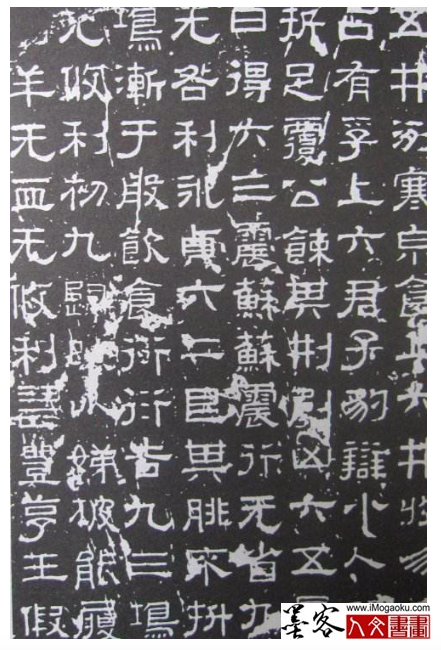 五井洌寒泉食上六井收勿
占有孚上六君子豹辯小人
折足覆公餗其刑剭凶六五鼎
日得六三震蘇蘇震行无眚九
无咎利永貞六二艮其腓不抍
鴻漸于般飲食衎衎吉九三鴻
无攸利初九歸妹以娣跛能履
羊无血无攸利豐亨王假
墨客
人文書畫
www.iMogaoku.com